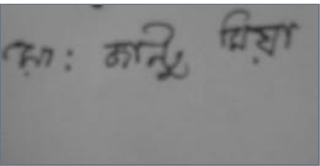 মো: কালু মিয়া